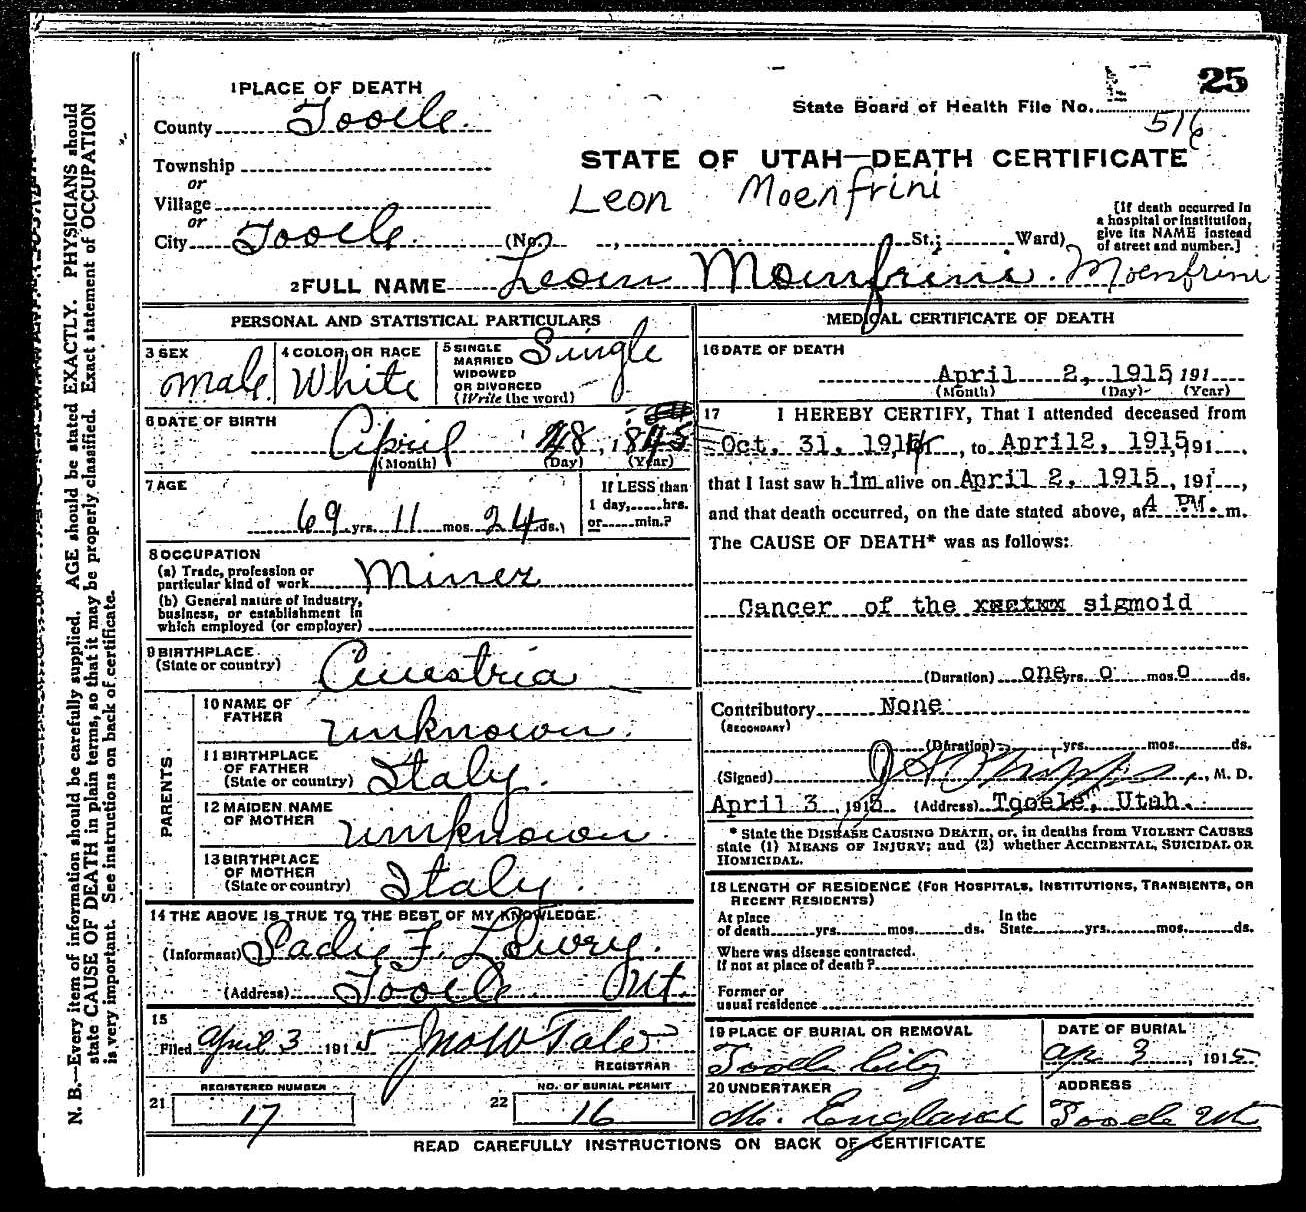 25
1 PLACE OF DEATH
State Board of Health File No.
516
County Tooele.
STATE OF UTAH—DEATH CERTIFICATE
Township
or
Village
Leon Moenfrini
[If death occurred in a hospital or institution, give its NAME instead of street and number.]
or
City Tooele. (No. , St.; Ward)
2 FULL NAME Leon Moenfrini. Moenfrini
PERSONAL AND STATISTICAL PARTICULARS
3 SEX
male
4 COLOR OR RACE
White
5 SINGLE
MARRIED
WIDOWED
OR DIVORCED
(Write the word)
Single
6 DATE OF BIRTH
April 28, 1845
(Month) (Day) (Year)
7 AGE
69 yrs. 11 mos. 24 ds.
If LESS than
1 day, hrs.
or min.?
8 OCCUPATION
(a) Trade, profession or
particular kind of work Miner
(b) General nature of industry,
business, or establishment in
which employed (or employer)
9 BIRTHPLACE
(State or country) Austria
PARENTS
10 NAME OF
FATHER unknown.
11 BIRTHPLACE
OF FATHER
(State or country) Italy.
12 MAIDEN NAME
OF MOTHER unknown.
13 BIRTHPLACE
OF MOTHER
(State or country) Italy.
14 THE ABOVE IS TRUE TO THE BEST OF MY KNOWLEDGE.
(Informant) Sadie F. Lowry.
(Address) Tooele Ut.
15
Filed April 3 1915
REGISTRAR
REGISTERED NUMBER
21 17
NO. OF BURIAL PERMIT
22 16
MEDICAL CERTIFICATE OF DEATH
16 DATE OF DEATH
April 2, 1915 191
(Month) (Day) (Year)
17 I HEREBY CERTIFY, That I attended deceased from
Oct. 31, 1914, to April 2, 1915, 191
that I last saw him alive on April 2, 1915, 191 ,
and that death occurred, on the date stated above, at 4 PM. m.
The CAUSE OF DEATH* was as follows:
Cancer of the sigmoid
(Duration) one yrs. 0 mos. 0 ds.
Contributory None
(SECONDARY)
(Duration) yrs. mos. ds.
(Signed) , M. D.
April 3, 1915 (Address) Tooele, Utah.
* State the DISEASE CAUSING DEATH, or, in deaths from VIOLENT CAUSES
state (1) MEANS OF INJURY; and (2) whether ACCIDENTAL, SUICIDAL OR
HOMICIDAL.
18 LENGTH OF RESIDENCE (FOR HOSPITALS, INSTITUTIONS, TRANSIENTS, OR
RECENT RESIDENTS)
At place
of death yrs. mos. ds.
In the
State yrs. mos. ds.
Where was disease contracted.
If not at place of death?
Former or
usual residence
19 PLACE OF BURIAL OR REMOVAL
Tooele City
DATE OF BURIAL
Ap 3, 1915
20 UNDERTAKER
M. England
ADDRESS
Tooele Ut
READ CAREFULLY INSTRUCTIONS ON BACK OF CERTIFICATE
N. B.—Every item of information should be carefully supplied. AGE should be stated EXACTLY. PHYSICIANS should
state CAUSE OF DEATH in plain terms, so that it may be properly classified. Exact statement of OCCUPATION
is very important. See instructions on back of certificate.